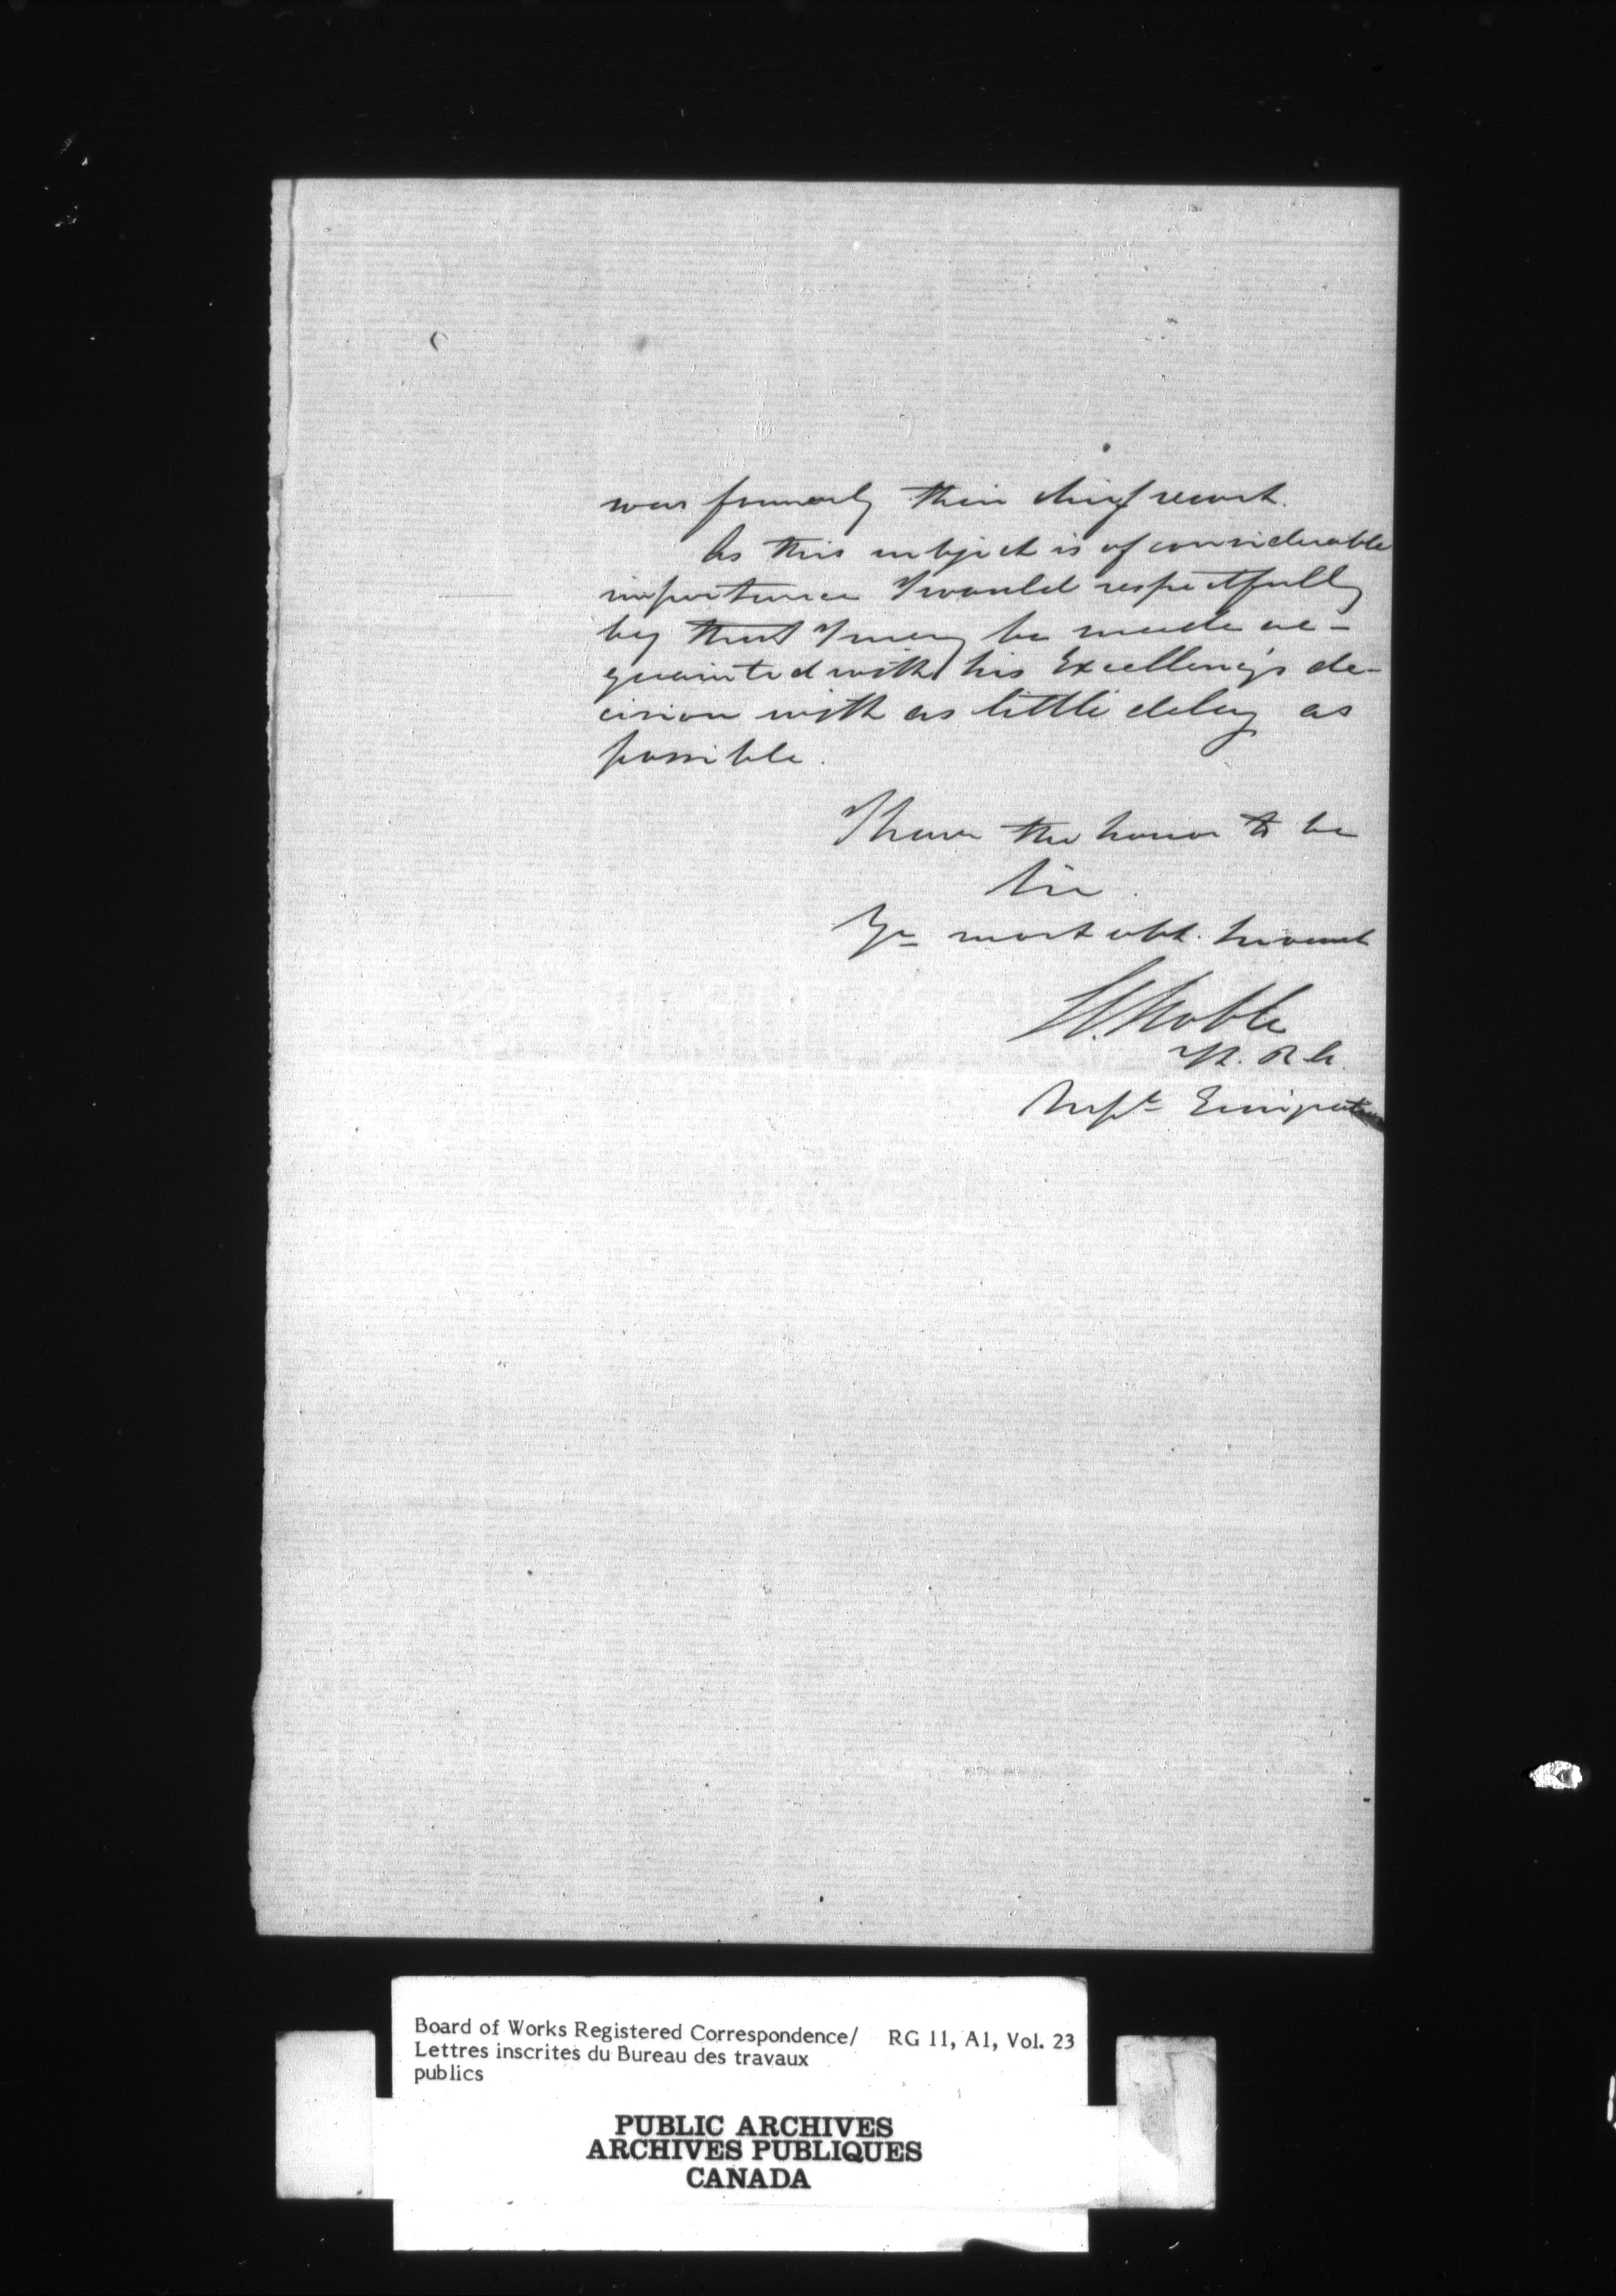 was formerly their chief resort.
As this subject is of considerable
importance I would respectfully
beg that I may be made ac-
quainted with his Excellency's de-
cision with as little delay as
possible.
I have the honor to be
Sir
Yr most obt. Servant
Noble
Supt Emigration
Board of Works Registered Correspondence/ RG 11, A1, Vol. 23
Lettres inscrites du Bureau des travaux
publics
PUBLIC ARCHIVES
ARCHIVES PUBLIQUES
CANADA